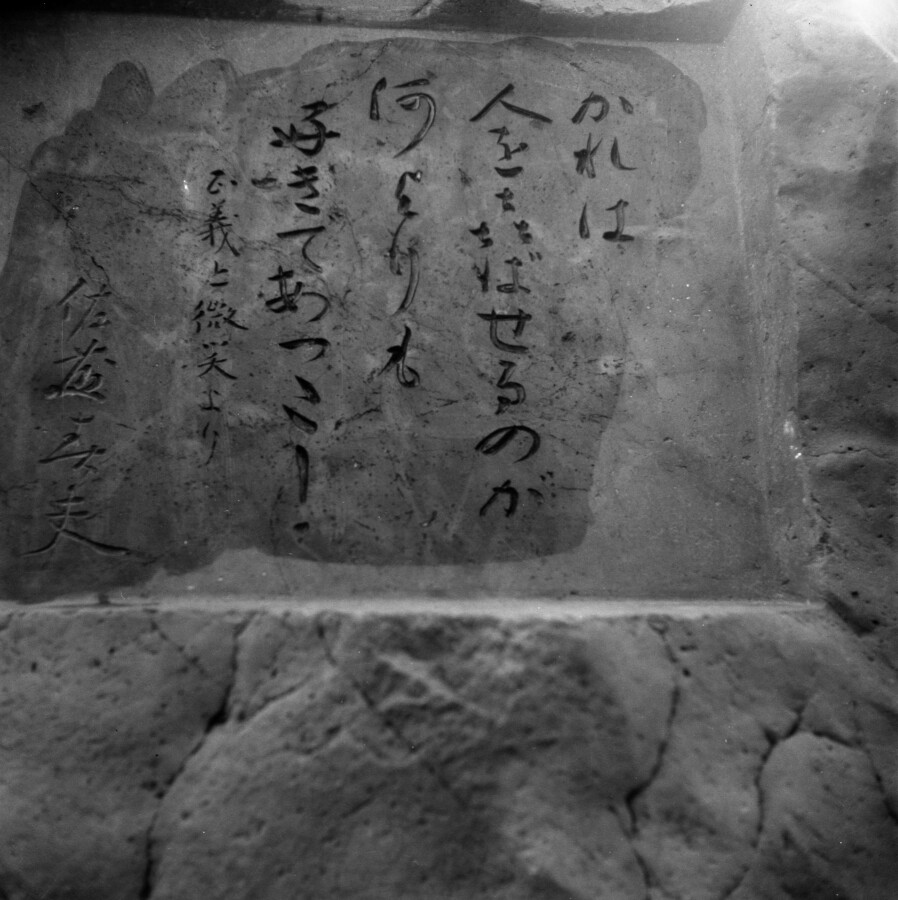 かれは
人を㐂ばせるのが
何よりも
好きてあつた！
正義と微笑より
佐藤春夫